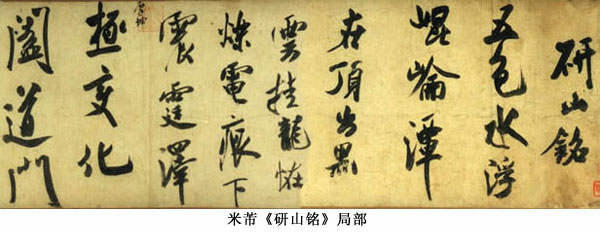 研山銘
五色水浮
崐崘潭
在頂出黑
雲挂龍恠
爍電痕下
震霆澤
厚坤
極變化
闔道門
米芾《研山铭》局部